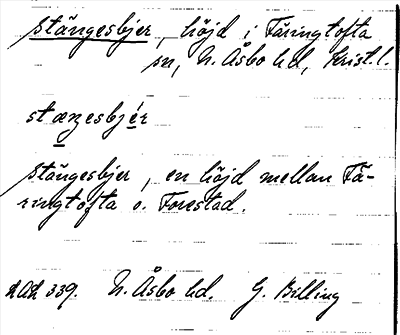 Stängesbjer, höjd i Färingtofta
sn, N. Åsbo hd, Krist.l.
stæŋesbjér
Stängesbjer, en höjd mellan Fä-
ringtofta o. Forestad.
LAL 339. N. Åsbo hd. G. Billing